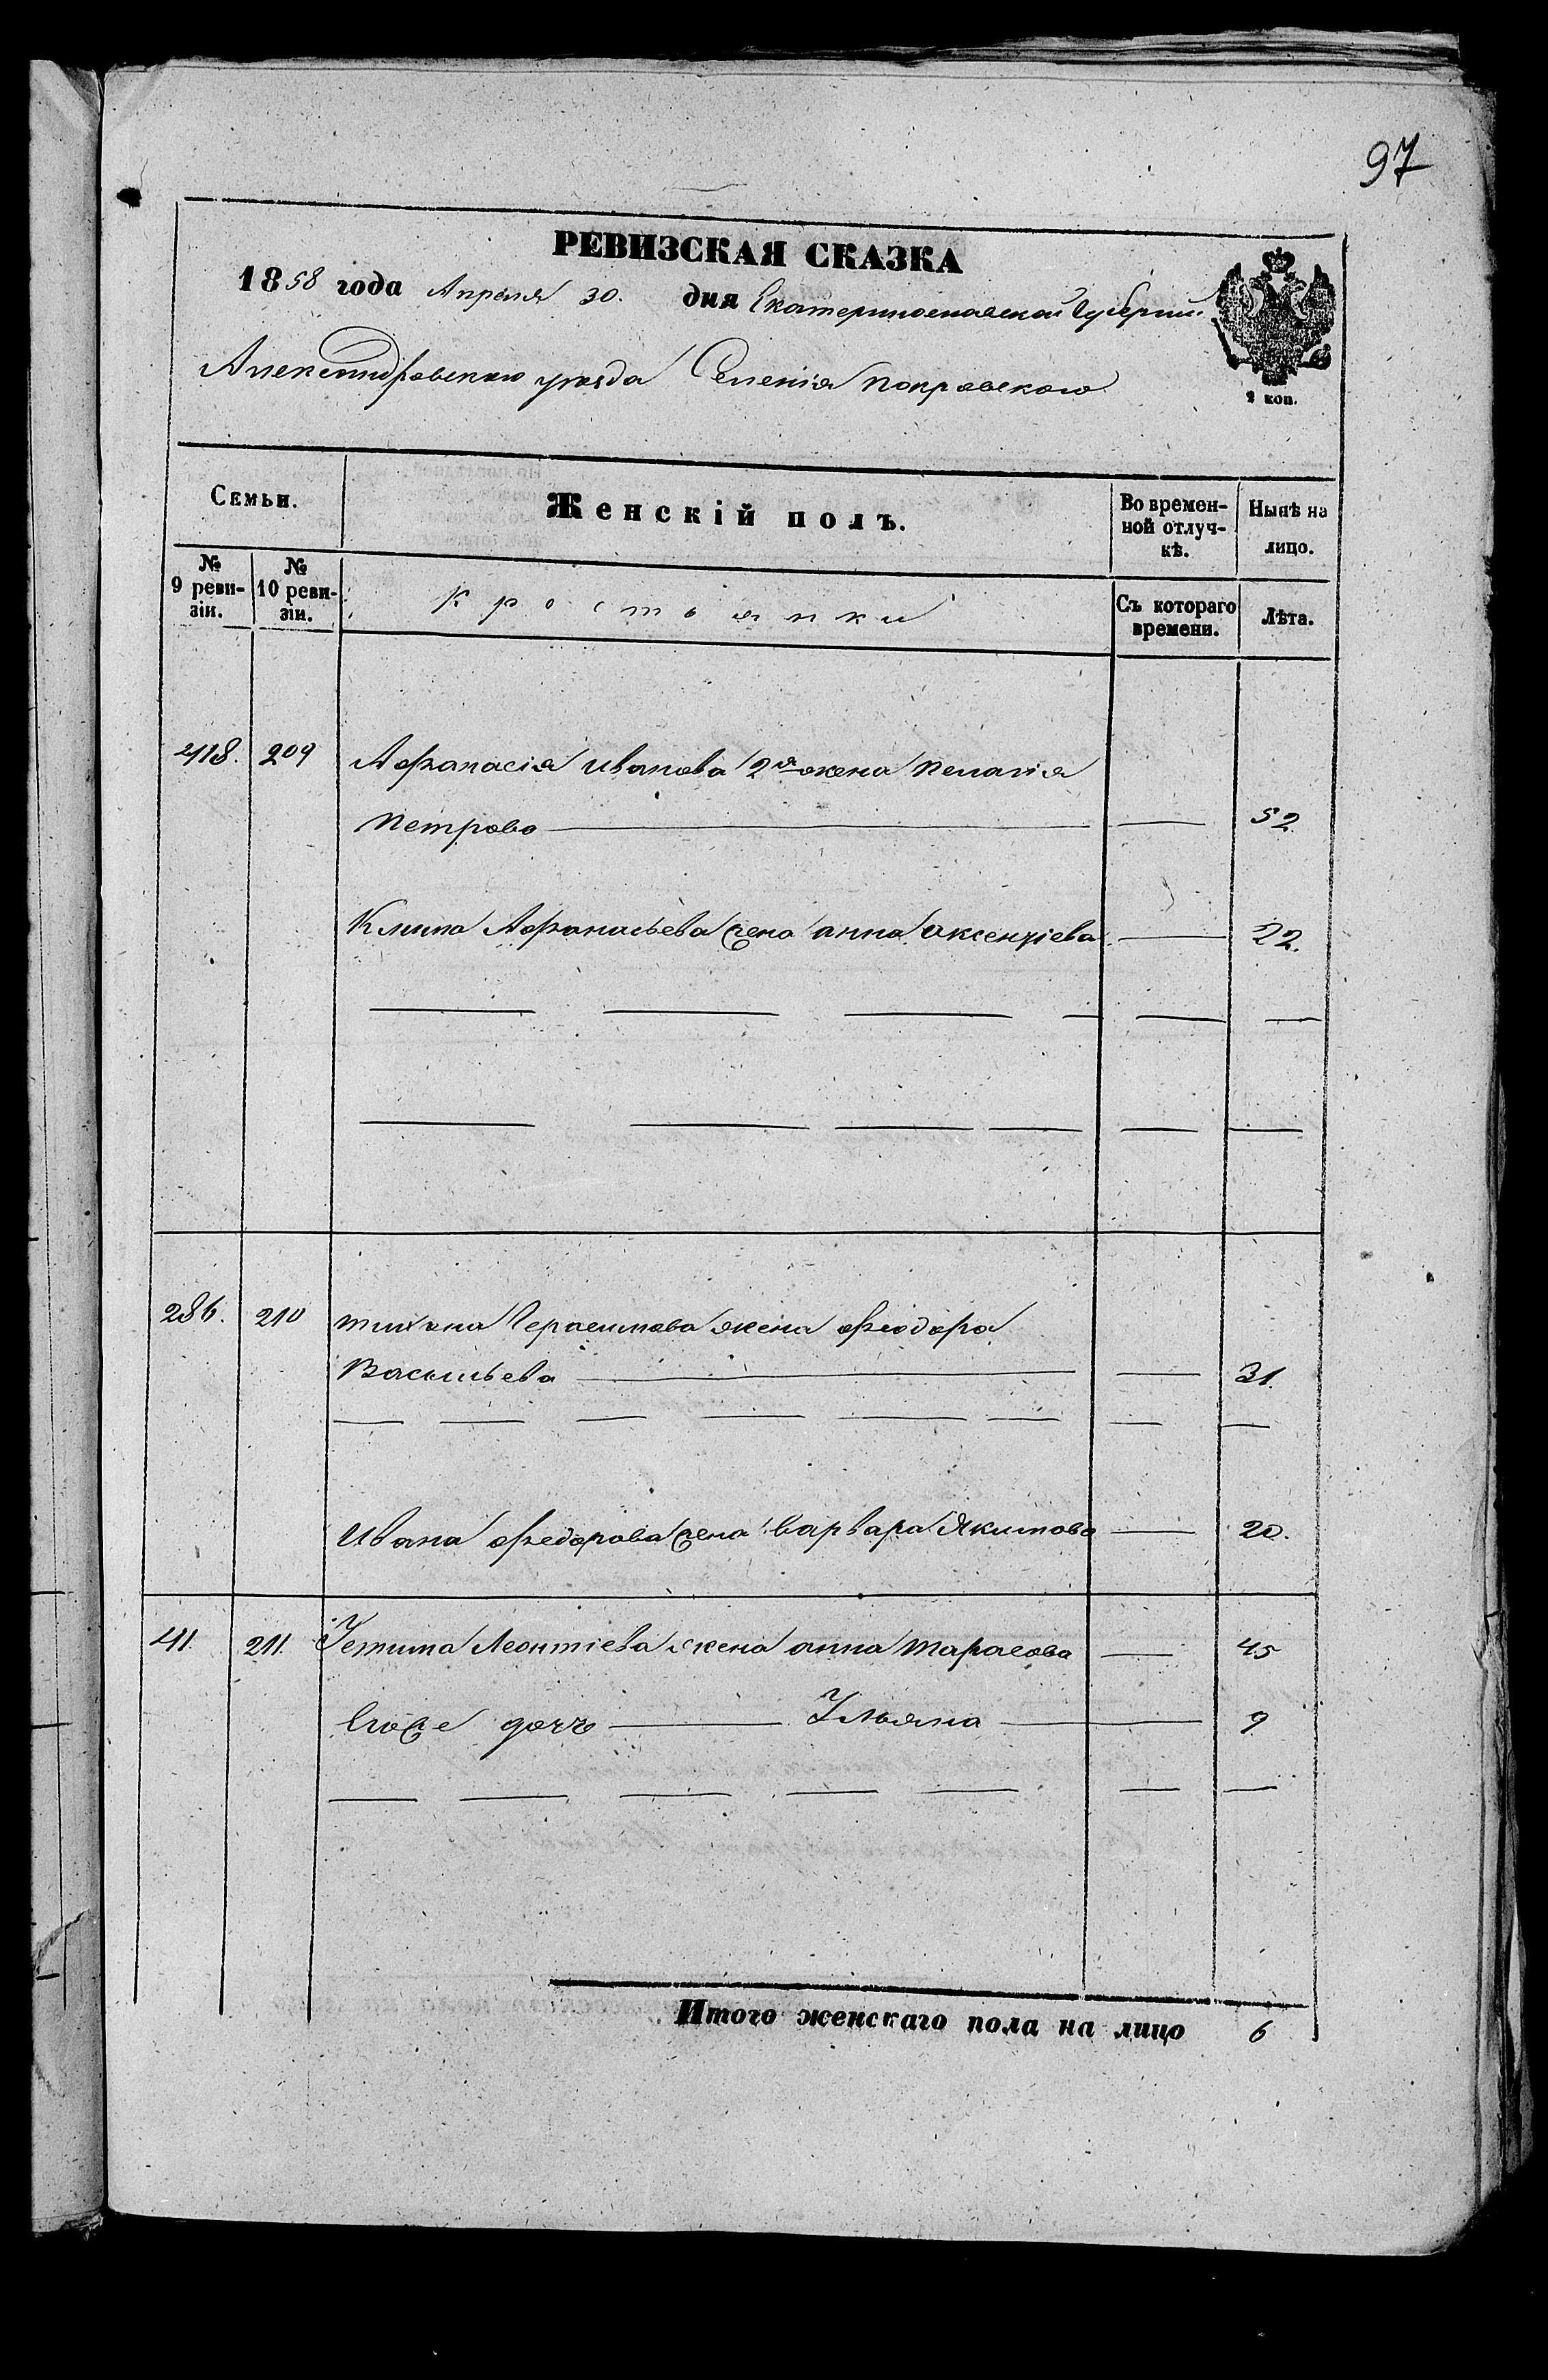 97
РЕВИЗСКАЯ СКАЗКА
1858 года Апреля 30. дня Екатеринославской Губернии
Александровскаго уезда Селенія Покровскаго
2 коп.
Семьи. Женскій полъ. Во времен-ной отлуч-кѣ. Нынѣ на лицо.
№ 9 реви-зіи. № 10 реви-зіи. Крестьянки Съ котораго времени. Лѣта.
418. 209 Афанасія Иванова 2я жена Пелагія
Петрова — — 52
Клима Афанасьева жена анна Аксентіева — 22.
286. 210 Тихона Герасимова жена Феодора
Васильева — — 31.
Ивана Федорова жена Варвара Якимова — 20.
41. 211. Устима Леонтіева жена анна Тарасова — 45
Его же дочь — Ульяна — 9
Итого женскаго пола на лицо 6